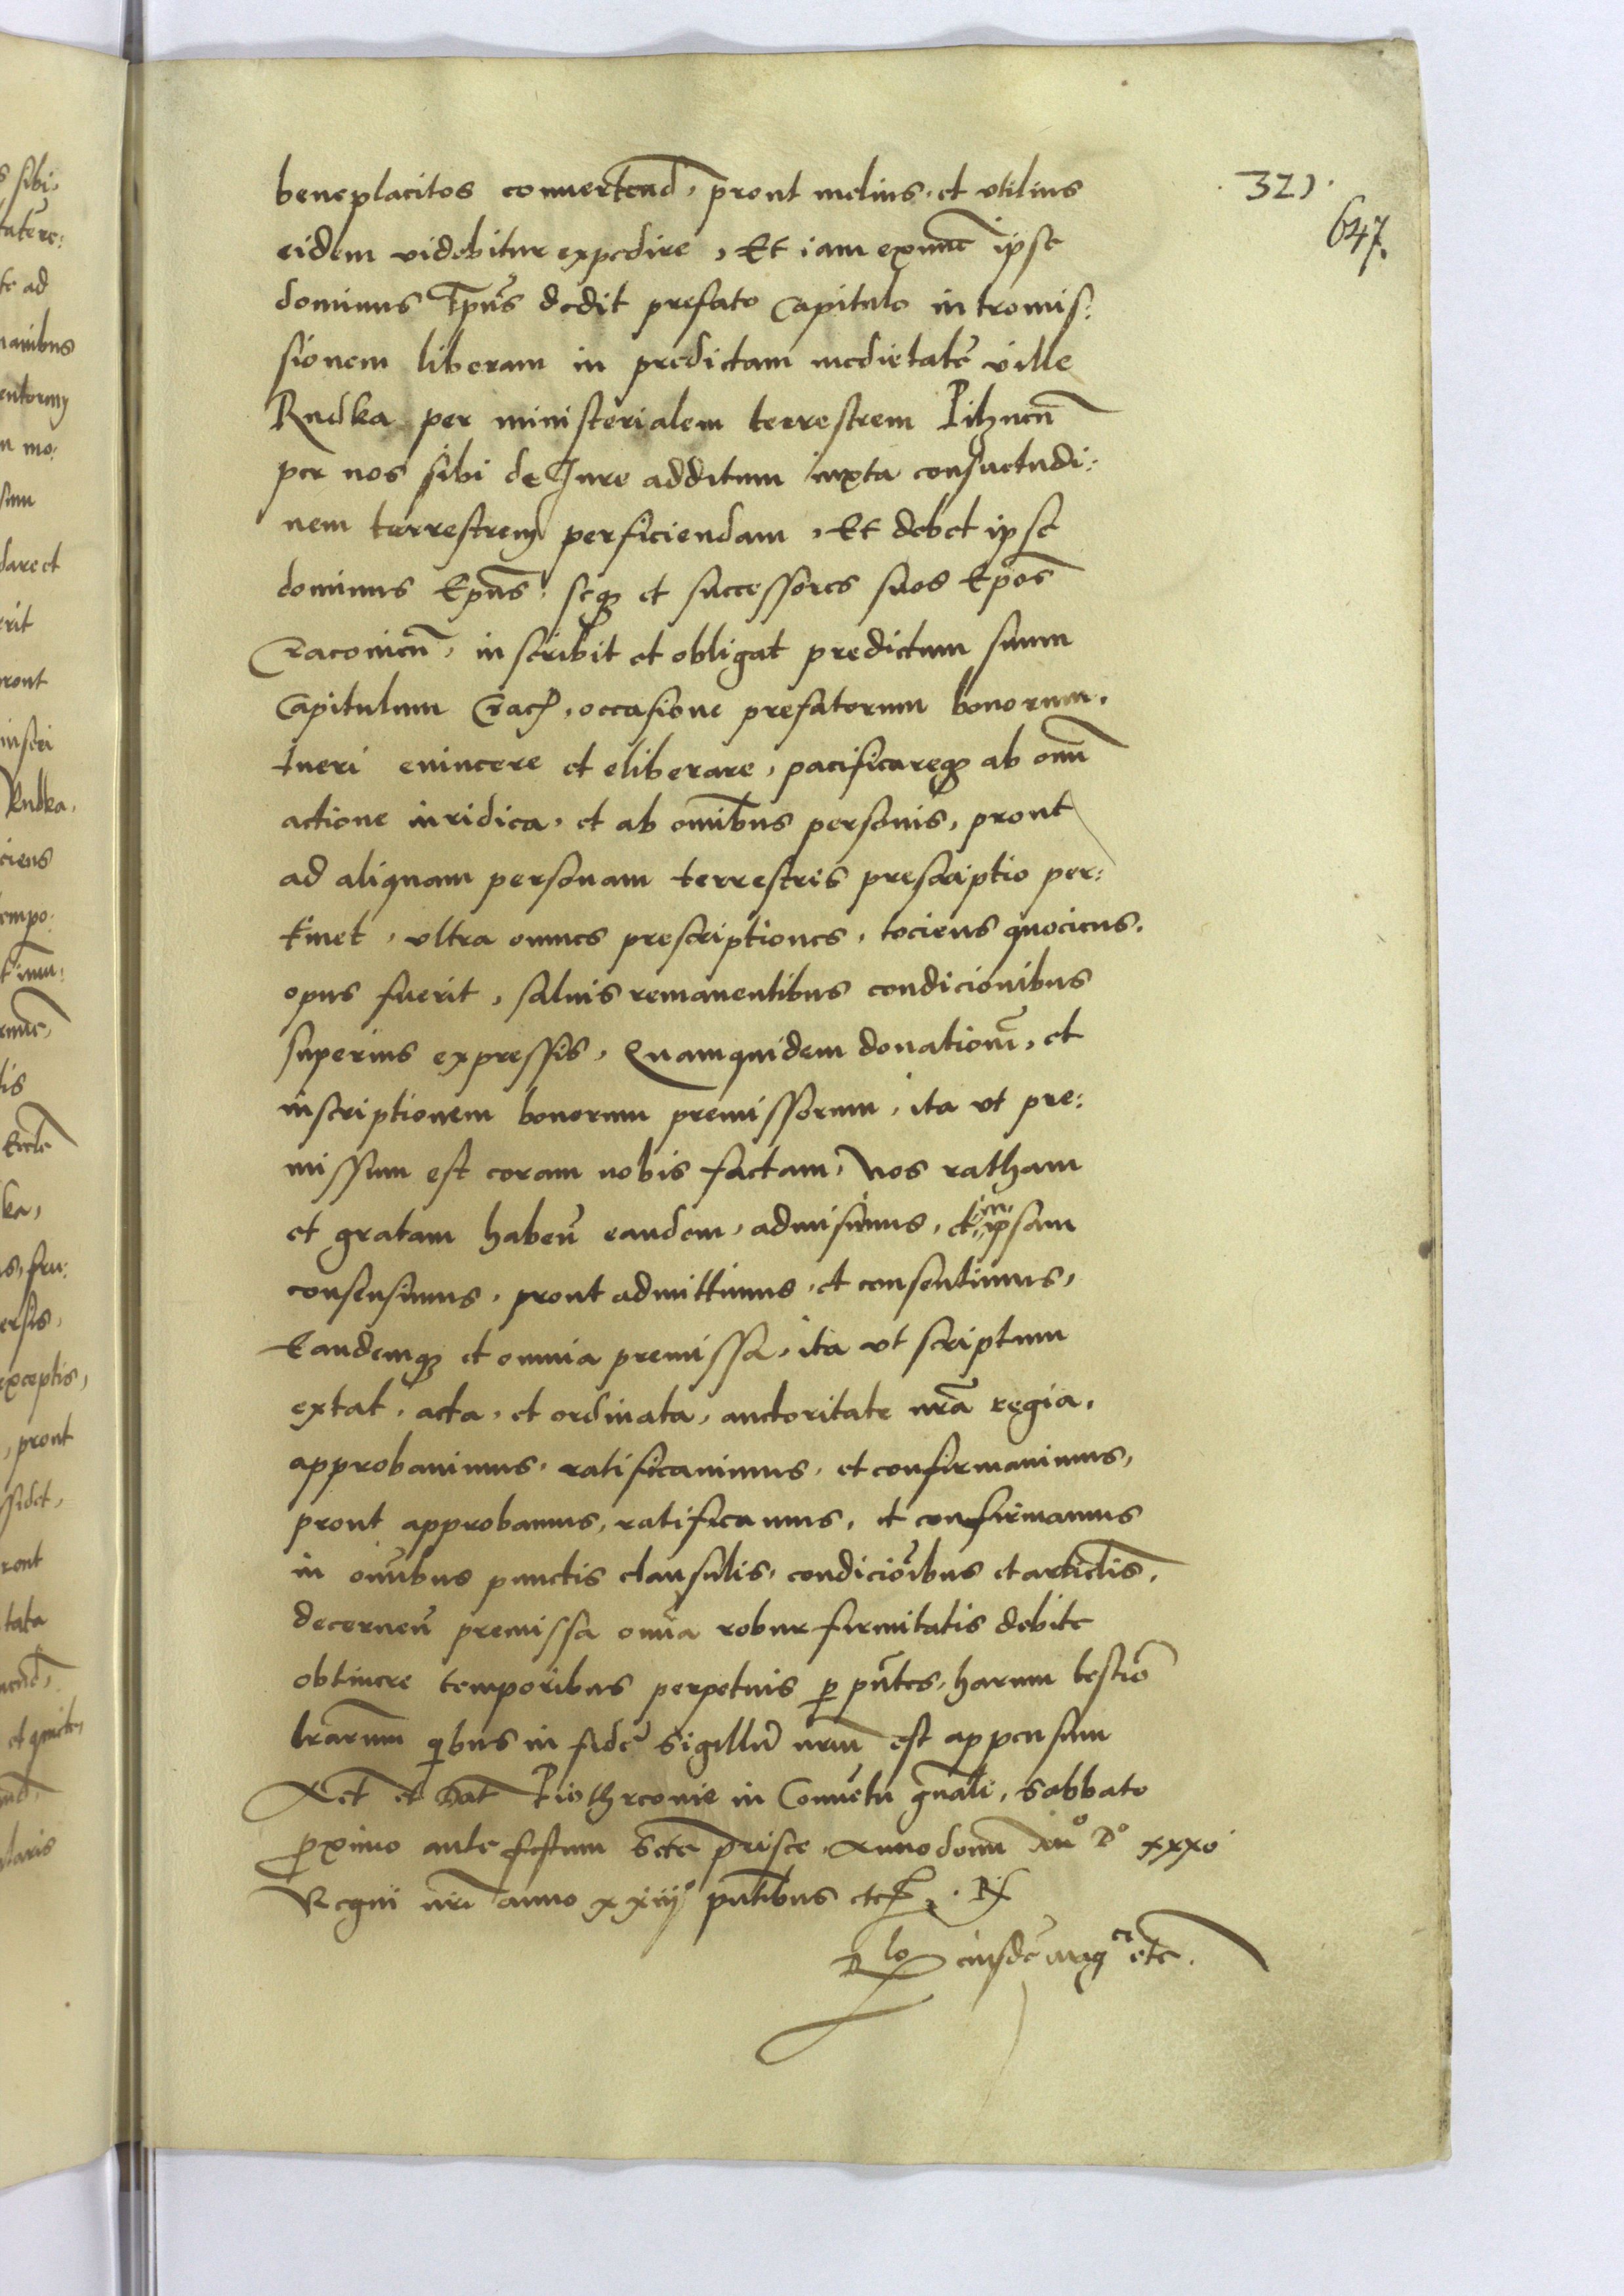 beneplacitos conuertend, prout melius et vtilius
eidem videbitur expedire, Et iam exnunc ipse
dominus Epus dedit prefato Capitulo intromis:
sionem liberam in predictam medietate ville
Rudka per ministerialem terrestrem
per nos sibi de Jure additum iuxta consuetudi:
nem terrestrem perficiendam, Et debet ipse
dominus Epus seq3 et successores suos Epos
Cracouien, inscribit et obligat predictum suum
Capitulum Crac, occasione prefatorum bonorum,
tueri euincere et eliberare, pacificareq3 ab omi
actione iuridica, et ab omibus personis, prout
ad aliquam personam terrestris prescriptio per:
tinet, vltra omnes prescriptiones, tociens quociens,
opus fuerit, saluis remanentibus condicionibus
superius expressis, Quamquidem donationem, et
inscriptionem bonorum premissorum, ita vt pre:
missum est coram nobis factam, Nos ratham
et gratam haben eandem, admisimus, et in ipsam
consensimus, prout admittimus, et consentimus,
Eandemq3 et omnia premissa, ita vt scriptum
extat, acta, et ordinata, auctoritate nra regia,
approbauimus, ratificauimus, et confirmauimus,
prout approbamus, ratificamus, et confirmamus
in omibus punctis clausulis, condicioibus et articlis,
decernen premissa omia robur firmitatis debite
obtinere temporibus perpetuis p pntes, harum testio
lrarum qibus in fide Sigillu nrum est appensum
Act et Dat Piothrconie in Conuetu gnali, Sabbato
pximo ante festum Scte Prisce Anno domi Mo Do xxxo
Regni nri anno xxiiijo pntibus etc
Rlo eiusde mag ce etc.
321.
647.